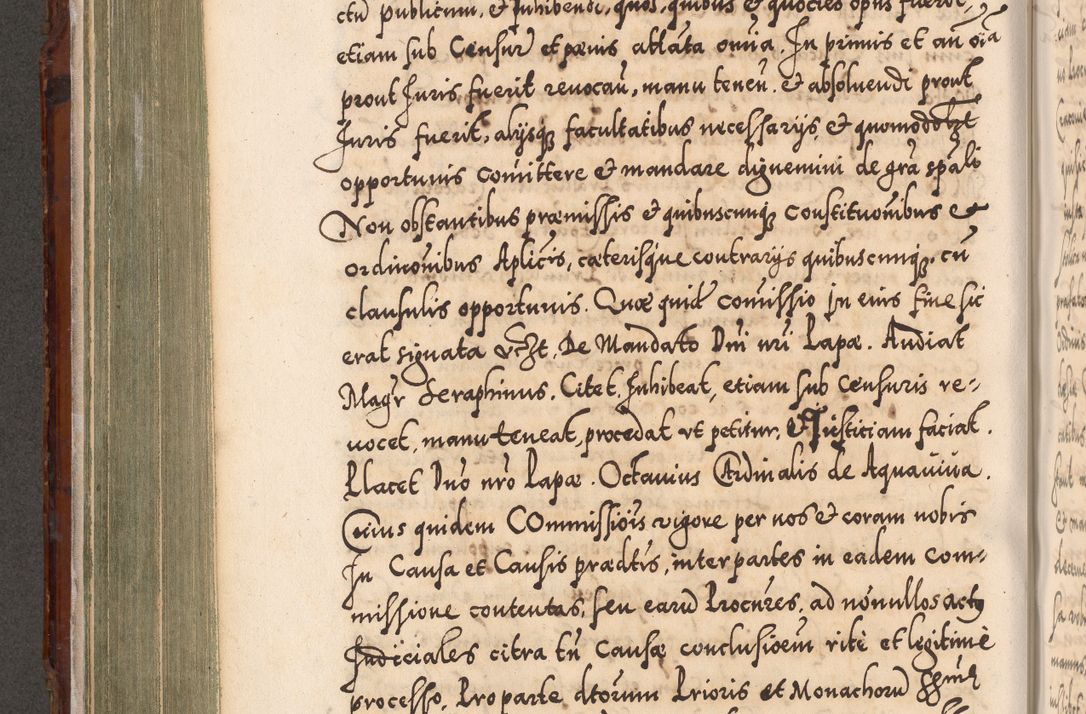 ctū publicum, & Inhibendi, quos, quibus & quoties opus fuerit,
etiam sub Censur̄ et pœnis ablata omīa. In primis et an̄ oīa
prout Iuris fuerit reuocan̄, manu tenen̄. & absoluendi prout
Iuris fuerit, alijsq̨ facultatibus necessarijs, & quomodol̄t
opportunis comittere & mandare dignemini de grā spāli
Non obstantibus præmissis & quibuscunq̨ Constitutionibus &
ordinōnibus Aplicīs, cæterisque contrarijs quibuscunq̨, cū
clausulis opportunis. Quæ quid̄ Comissio in eius fine sic
erat signata vz̄t, De Mandato Dnī nrī Papæ. Audiat
Magr̄ Seraphinus. Citet, Inhibeat, etiam sub Censuris re-
uocet, manuteneat, procedat vt petitur, & Iusticiam faciat.
Placet Dnō nrō Papæ. Octauius Cardinalis de Aquauiua.
Cuius quidem COmmissiōis vigore per nos & coram nobis
In Causa et Causis prædtīs, inter partes in eadem Com-
missione contentas, seu earū Procūres, ad nōnullos actus
Iudiciales citra tn̄ Causæ conclusioēm ritè et legitimè
processo, Pro parte dtorum Prioris et Monachorū